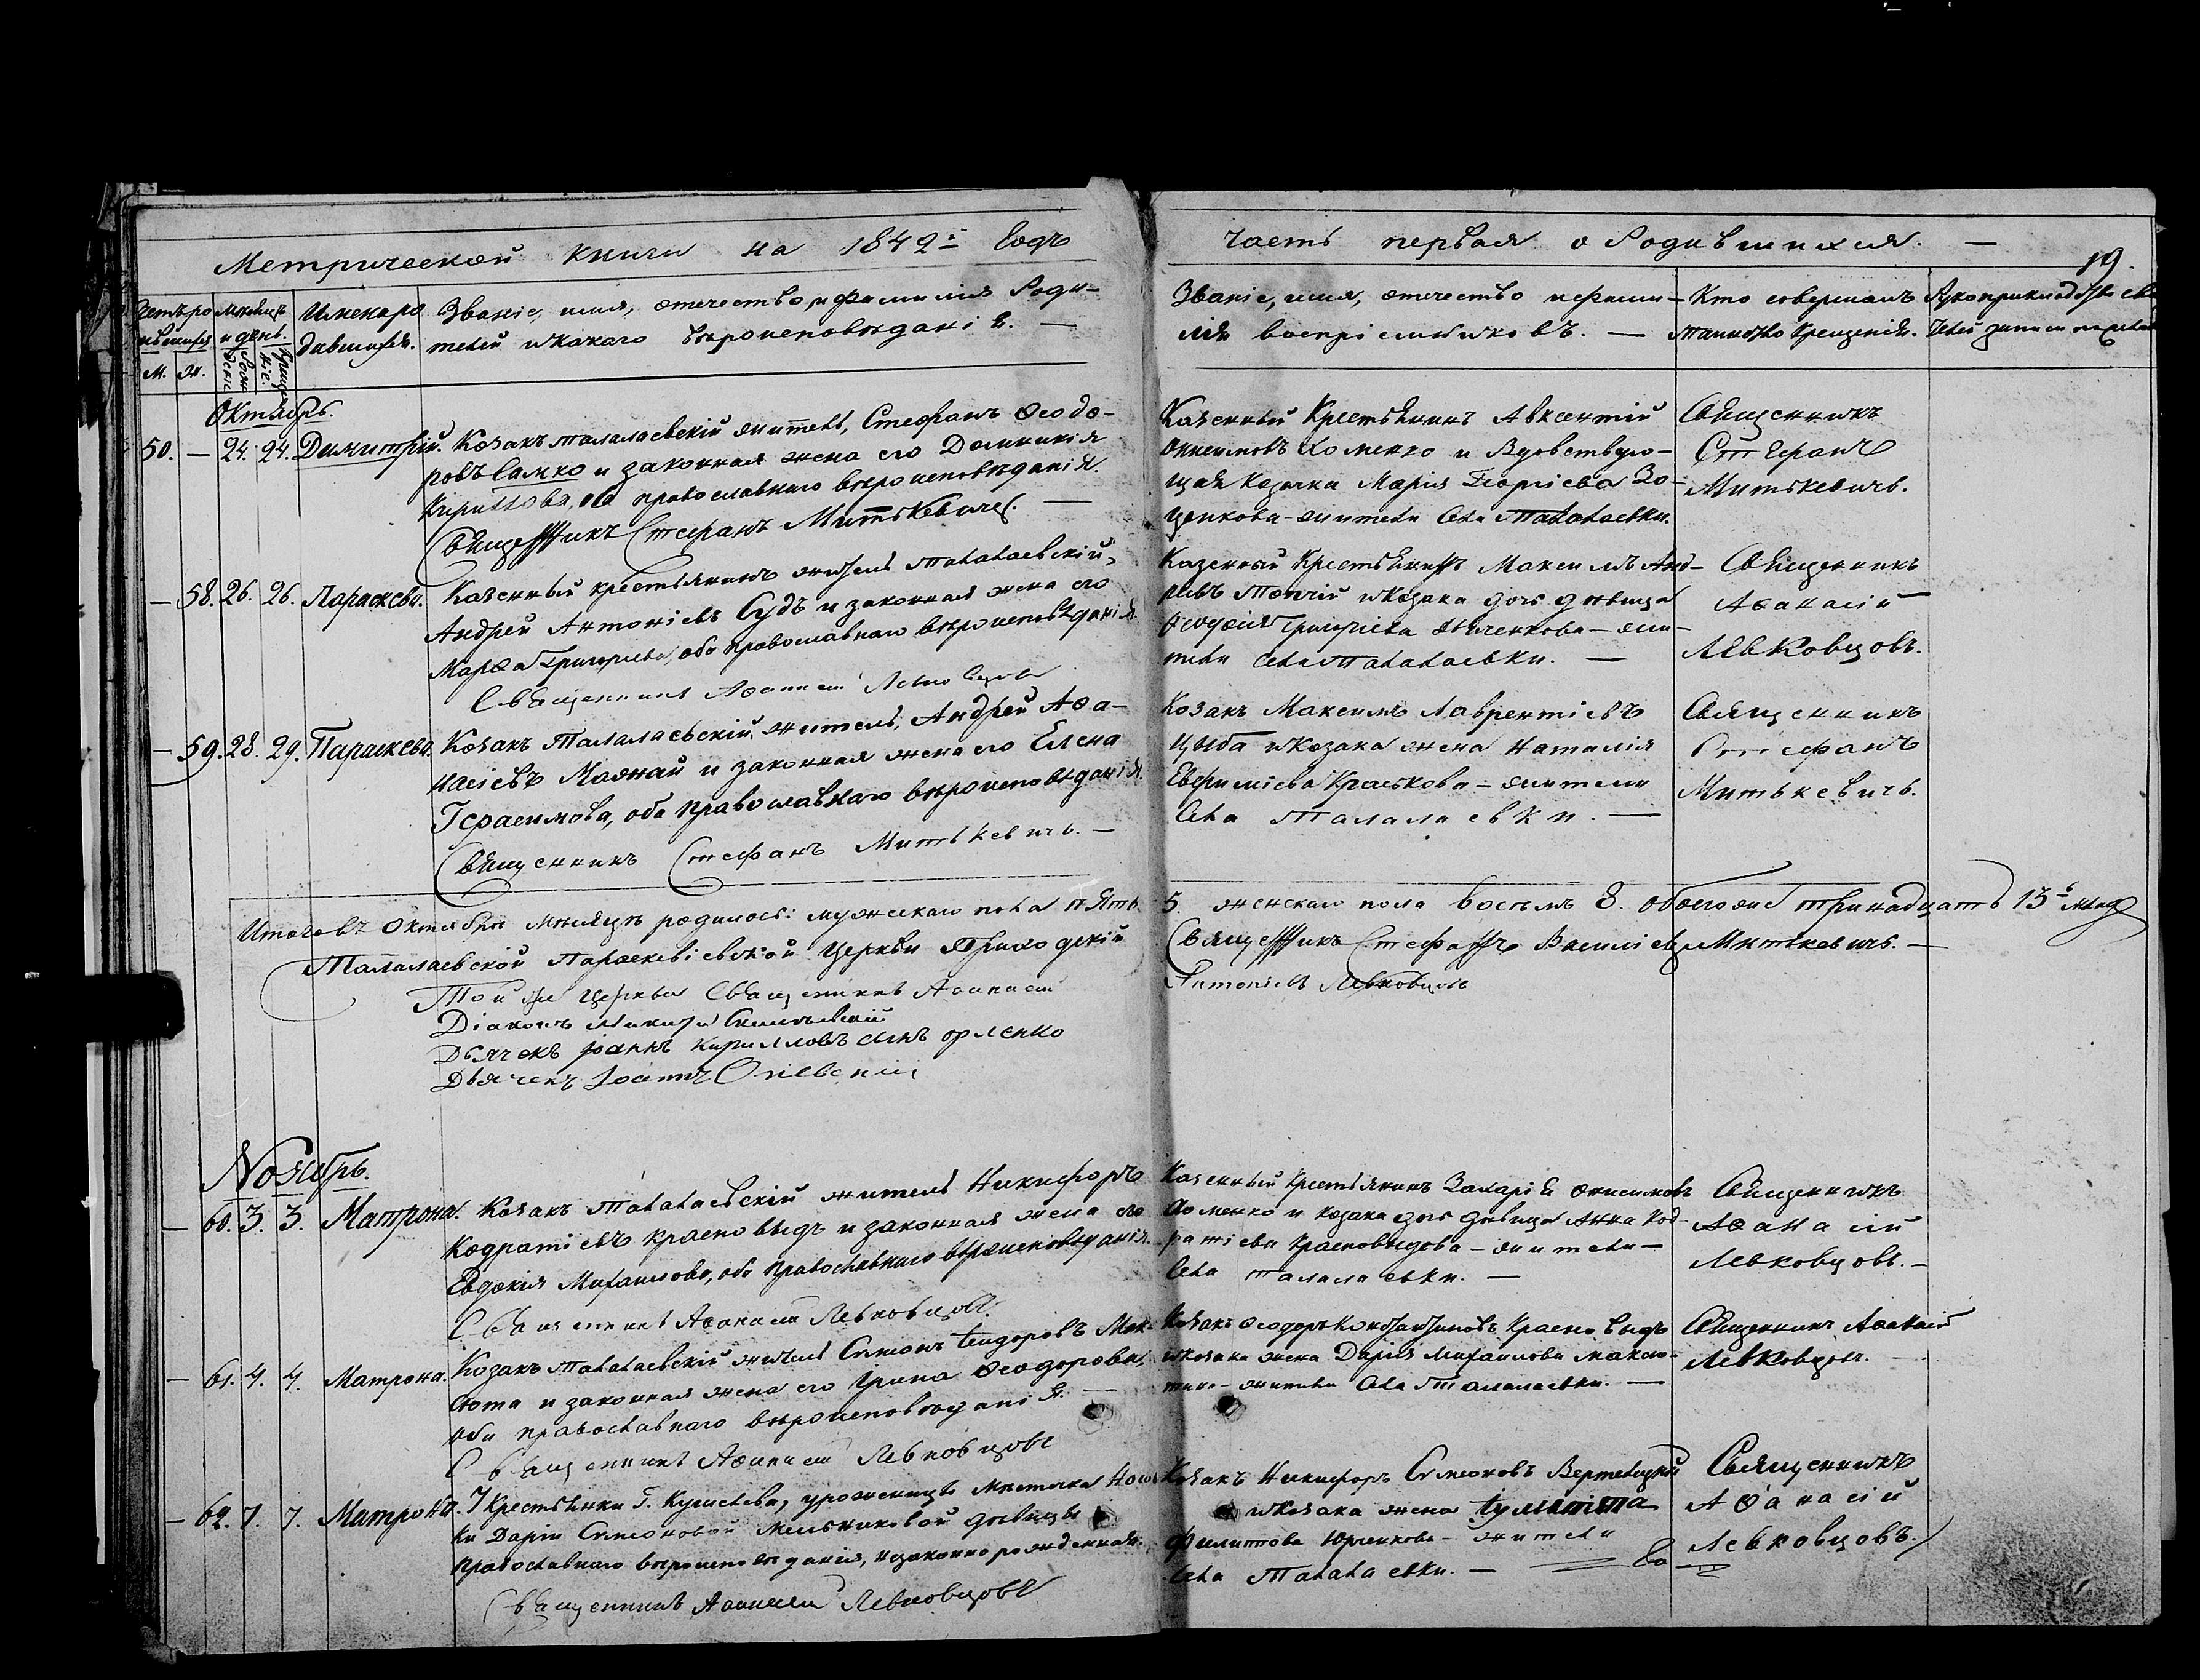 Метрической книги на 1849й годъ
часть первая о Родившихся. —
19.
Счетъ ро
дившихся
М. Ж.
Мѣсяцъ
и день.
Рожденіе
Крещеніе.
Имена ро
дившихся.
Званіе, имя, отечество, и фамилія Роди-
телей и какого вѣроисповѣданія. —
Званіе, имя, отечество и фами-
лія воспріемниковъ. —
Кто совершалъ
таинство Крещенія.
Рукоприкладство сви
Октябрь.
50. — 24. 24. Димитрій.
Козакъ талалаевскій житель, Стефанъ Ѳеодо-
ровъ Самко и законная жена его Домникія
Кириллова, оба православнаго вѣроисповѣданія.
Священникъ Стефанъ Митькевичъ. —
Казенный Крестьянинъ Авксентій
Онисимовъ Хоменко и Вдовствую-
щая Козачка Марія Георгіева
жители Села Талалаевки.
Священникъ
Стефанъ
Митькевичъ.
— 58. 26. 26. Параскева.
Казенный крестьянинъ житель талалаевскій,
Андрей Антоніевъ Судъ и законная жена его
Марѳа Григорьева, оба православнаго вѣроисповѣданія.
Священникъ Аѳанасій Левковцовъ
Казенный Крестьянинъ Максимъ Анд-
реевъ и козака дочь дѣвица
Ѳеодосія Григоріева — жи-
тели Села Талалаевки. —
Священникъ
Аѳанасій
Левковцовъ.
— 59. 28. 29. Параскева.
Козакъ Талалаевскій житель, Андрей Аѳа-
насіевъ Мажнай и законная жена его Елена
Герасимова, оба православнаго вѣроисповѣданія.
Священникъ Стефанъ Митькевичъ. —
Козакъ Максимъ Лаврентіевъ
Цыба и козака жена Наталія
Евфиміева Краськова — жители
Села Талалаевки. —
Священникъ
Стефанъ
Митькевичъ.
Итого въ Октябрѣ мѣсяцѣ родилось: мужескаго пола пять 5. женскаго пола восемь 8. обоего жъ тринадцать 13ъ
Талалаевской Параскевіевской Церкви Приходскій Священникъ Стефанъ Василіевъ Митькевичъ. —
Той же Церкви Священникъ Аѳанасій Антоніевъ Левковцовъ
Діаконъ
Дьячекъ Іоаннъ Кирилловъ сынъ Орленко
Дьячекъ Іоаннъ
Ноябрь.
— 60. 3. 3. Матрона.
Козакъ Талалаевскій житель Никифоръ
Кодратіевъ Красновыдъ и законная жена его
Евдокія Михаилова, оба Православнаго вѣроисповѣданія.
Священникъ Аѳанасій Левковцовъ.
Казенный Крестьянинъ Захарій Онисимовъ
Хоменко и козака дочь дѣвица Анна Код-
ратіева Красновыдова — жители —
Села талалаевки. —
Священникъ
Аѳанасій
Левковцовъ. —
— 61. 4. 4. Матрона.
Козакъ талалаевскій житель Сѵмеонъ Ѳеодоровъ Мак-
сюта и законная жена его Ірина Ѳеодорова,
оба православнаго вѣроисповѣданія. —
Священникъ Аѳанасій Левковцовъ
Козакъ Ѳеодоръ Константиновъ Красновыдъ
и козака жена Дарія Михаилова
жители Села Талалаевки. —
Священникъ Аѳанасій
Левковцовъ.
— 62. 7. 7. Матрона.
У Крестьянки Г. Кушелева, уроженицы мѣстечка Носов-
ки Даріи Сѵмеоновой Мельниковой дѣвицы
Православнаго вѣроисповѣданія, незаконнорожденная.
Священникъ Аѳанасій Левковцовъ
Козакъ Никифоръ Сѵмеоновъ Вертелецкій
и козака жена Іулитта
Филиппова Юрченкова — жители
Села Талалаевки. —
Священникъ
Аѳанасій
Левковцовъ.